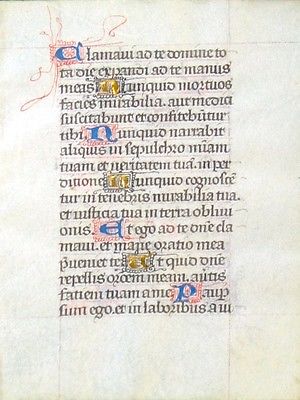 Clamaui ad te domine to
ta die expandi ad te manus
meas Nunquid mortuos
facies mirabilia. aut medici
suscitabunt et confitebuntur
tibi Nunquid narrabit
aliquis in sepulchro miam
tuam et veritatem tuā. in per
ditione Nunquid cognoscē
tur in tenebris mirabilia tua.
et iusticia tua in terra obliui
onis. Et ego ad te dn̄e cla
maui. et mane oratio mea
p̄ueniet te At quid dn̄e
repellis orōem meam. au̅tis
faciem tuam a me Paup̄
sum ego. et in laboribus a iu